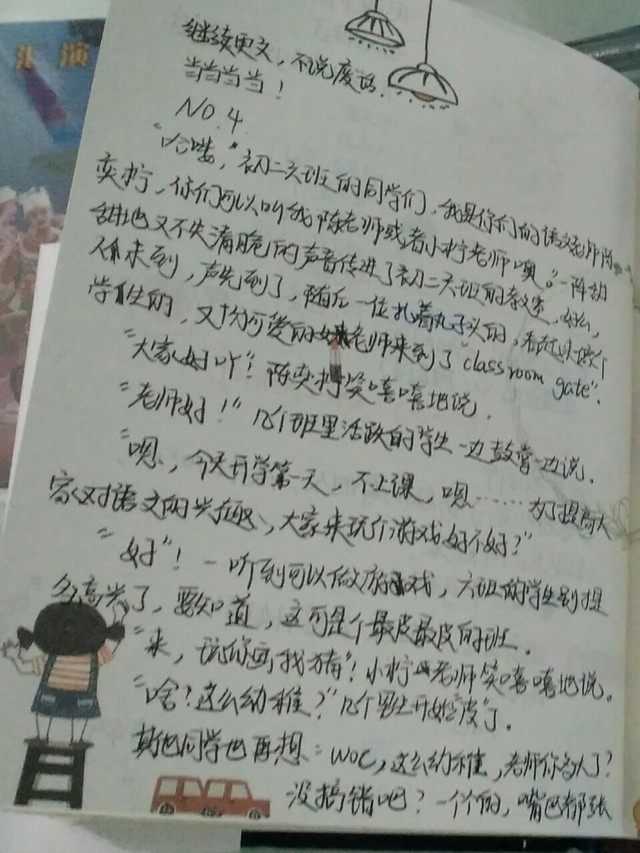 汇演
继续更文，不说废话.
当当当当！
NO.4
“哈喽，”初二六班的同学们，我是你们的语文老师陈
奕柠，你们可以叫我陈老师或者小柠老师噢。”一阵甜
甜地又不失清脆的声音传进了初二六班的教室.
人未到，声先到了，随后一位扎着丸子头的，看起来像个
学生的，又十分可爱的老师来到了“classroom gate”.
“大家好吖”！陈奕柠笑嘻嘻地说.
“老师好！”几个班里活跃的学生一边鼓掌一边说.
“呗，今天开学第一天，不上课，呗……为了提高大
家对语文的兴趣、大家来玩个游戏好不好？”
“好”！一听到可以做游戏，六班的学生别提
多高兴了，要知道，这可是个最皮最皮的班.
“来，玩你画我猜”！小柠老师笑嘻嘻地说。
“啥？这么幼稚？”几个男生开始“皮”了.
其他同学也再想：woc，这么幼稚，老师你多大了？
没搞错吧？一个个的，嘴巴都张